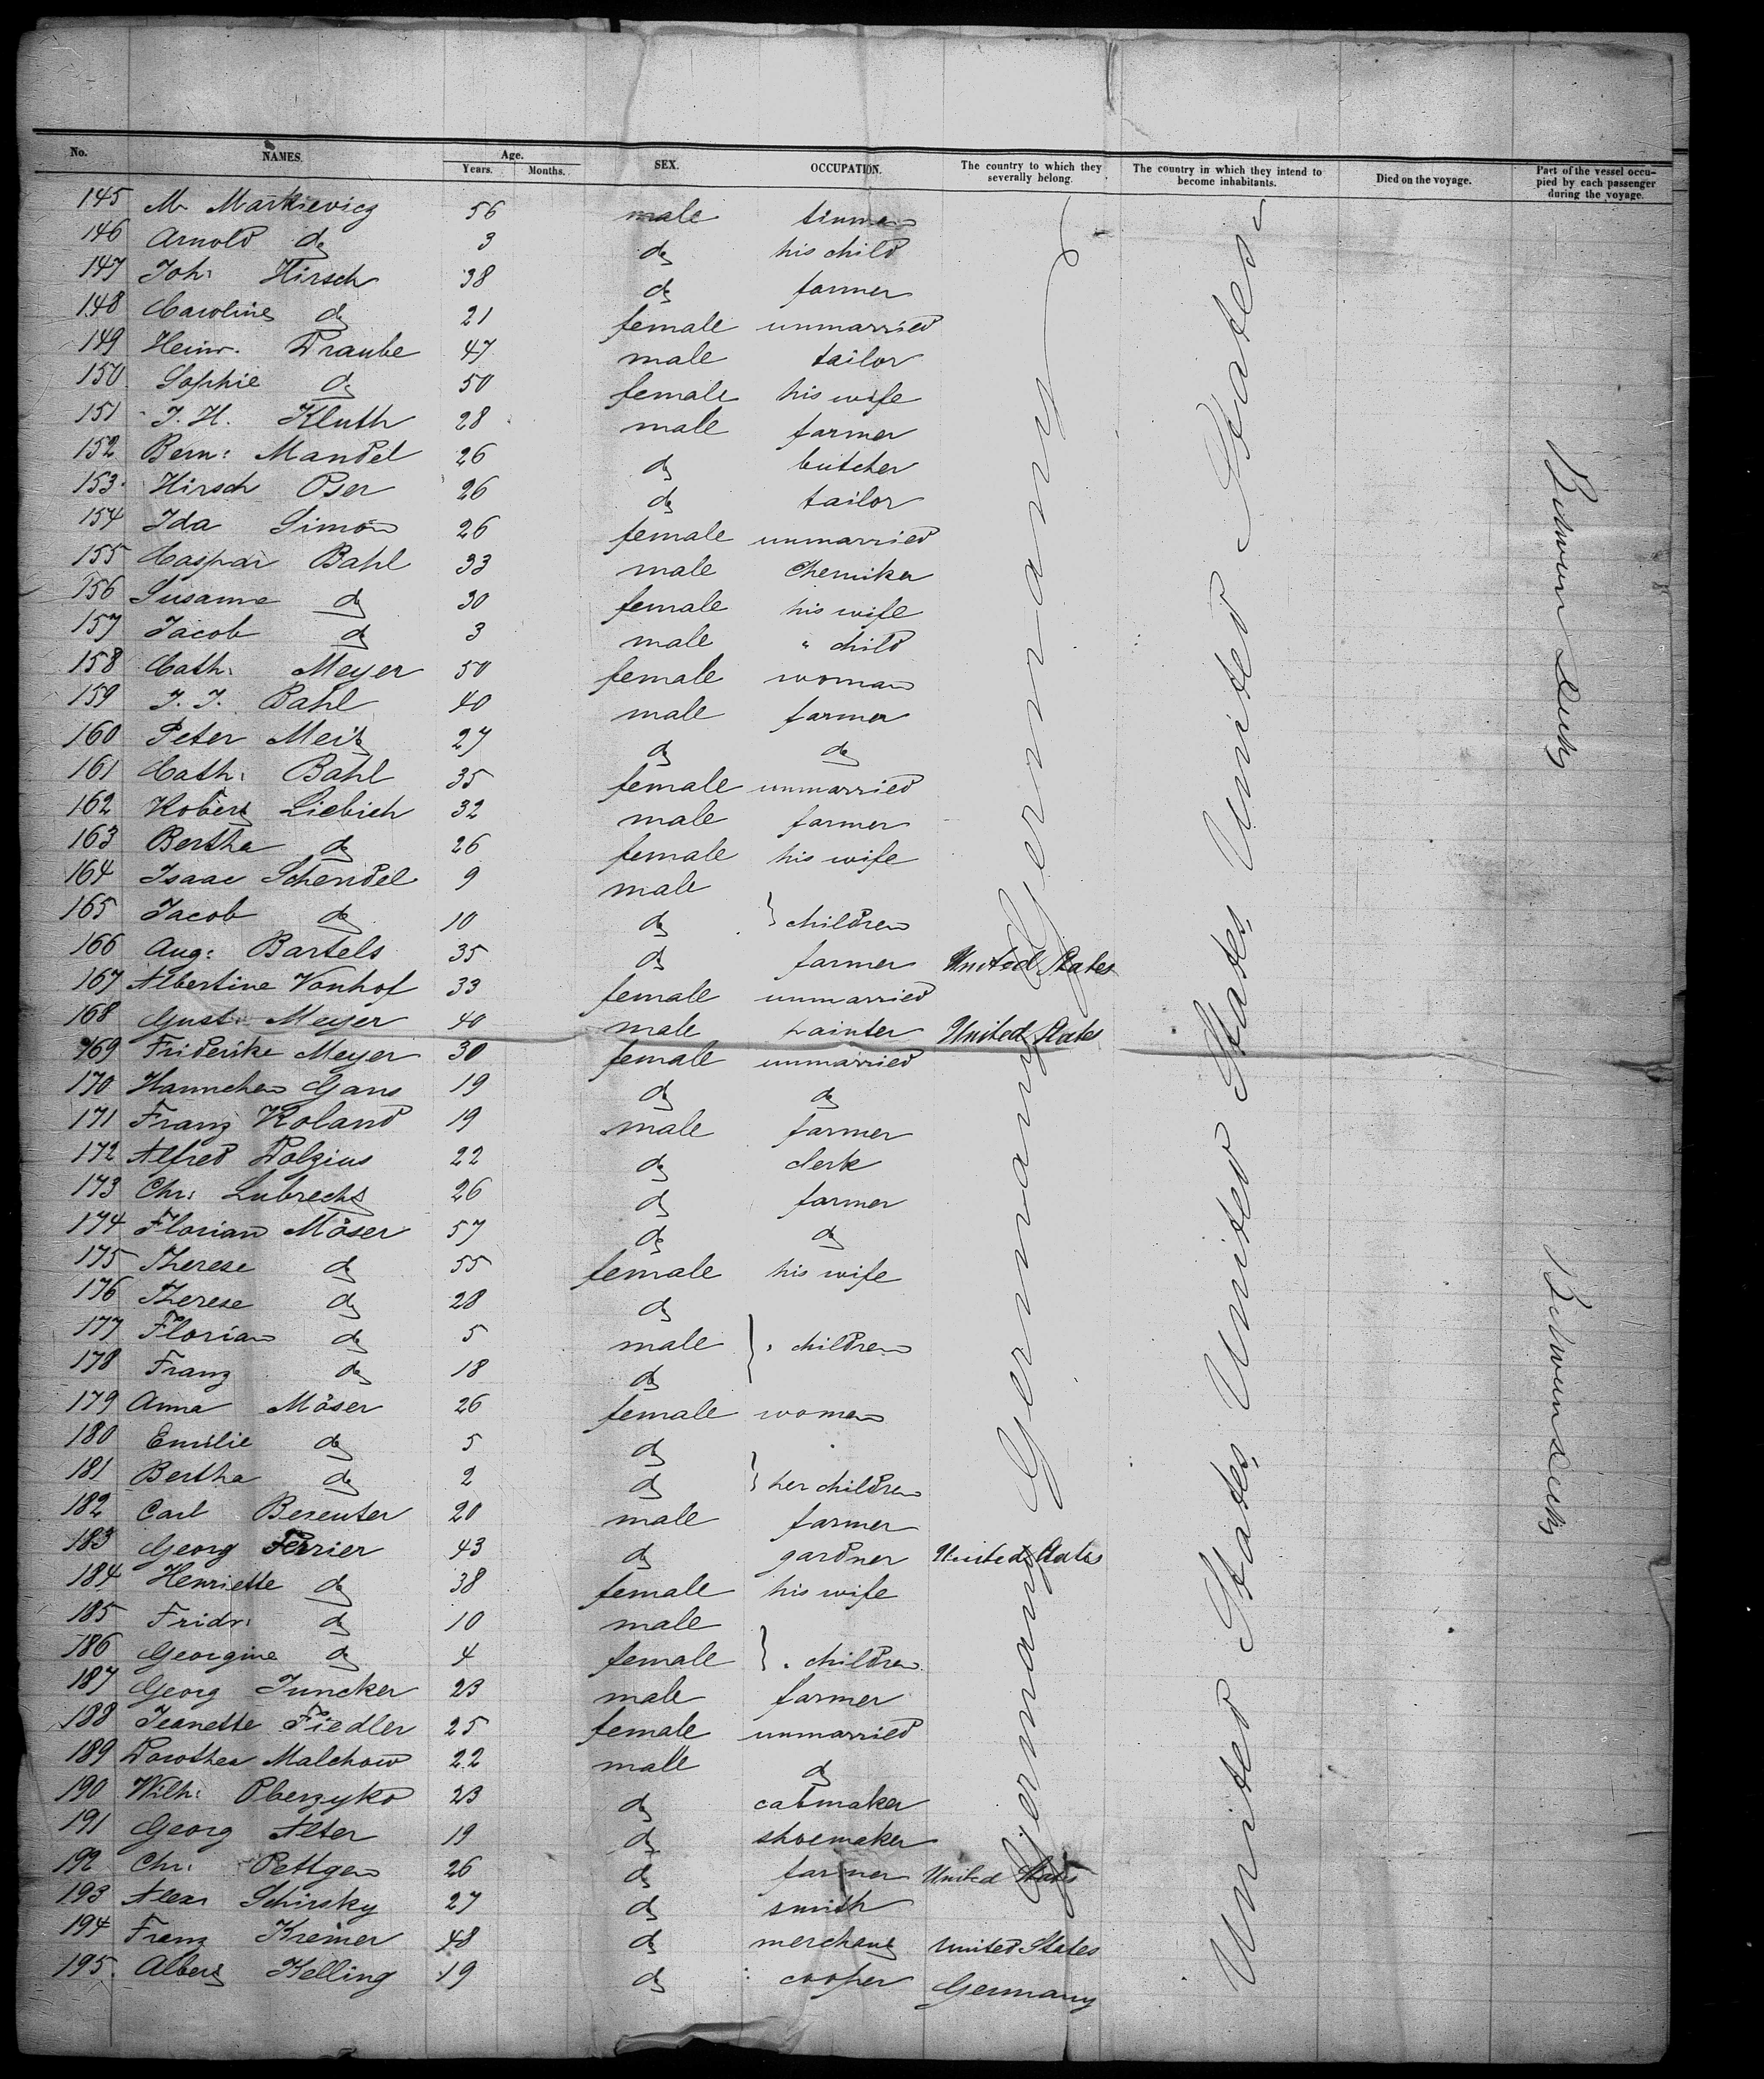 No. NAMES. Age. Years. Months. SEX. OCCUPATION. The country to which they severally belong. The country in which they intend to become inhabitants. Died on the voyage. Part of the vessel occupied by each passenger during the voyage.
145 M. Markievicz 56 male
146 Arnold do 3 do his child
147 Joh: Hirsch 38 do farmer
148 Caroline do 21 female unmarried
149 Heinr. Traube 47 male tailor
150 Sophie do 50 female his wife
151 J. H. Kluth 28 male farmer
152 Bern: Mandel 26 do butcher
153 Hirsch Oser 26 do tailor
154 Ida Simon 26 female unmarried
155 Caspar Bahl 33 male Chemiker
156 Susanne do 30 female his wife
157 Jacob do 3 male " child
158 Cath: Meyer 50 female woman
159 J. J. Bahl 40 male farmer
160 Peter Meitz 27 do do
161 Cath: Bahl 35 female unmarried
162 Robert Liebich 32 male farmer
163 Bertha do 26 female his wife
164 Isaac Schendel 9 male
165 Jacob do 10 do } children
166 Aug: Bartels 35 do farmer United States
167 Albertine Vonhof 33 female unmarried
168 Gust: Meyer 40 male painter United States
169 Friderike Meyer 30 female unmarried
170 Hannchen Gans 19 do do
171 Franz Roland 19 male farmer
172 Alfred Dolzius 22 do clerk
173 Chr: Lubrecht 26 do farmer
174 Florian Möser 57 do do
175 Therese do 55 female his wife
176 Therese do 28 do
177 Florian do 5 male } " children
178 Franz do 18 do
179 Anna Möser 26 female women
180 Emilie do 5 do
181 Bertha do 2 do } her children
182 Carl Bereuter 20 male farmer
183 Georg Ferrier 43 do gardner United States
184 Henriette do 38 female his wife
185 Fridr: do 10 male
186 Georgine do 4 female } " children
187 Georg Juncker 23 male farmer
188 Jeanette Fiedler 25 female unmarried
189 Dorothea Malchow 22 male do
190 Wilh: 23 do cabmaker
191 Georg Alter 19 do shoemaker
192 Chr: Pettgen 26 do farmer United States
193 Alex: Schirsky 27 do smith
194 Franz Kremer 48 do merchant United States
195 Albert Kelling 19 do cooper Germany
Germany Germany Germany
United States United States United States United States
Between Decks Between Decks